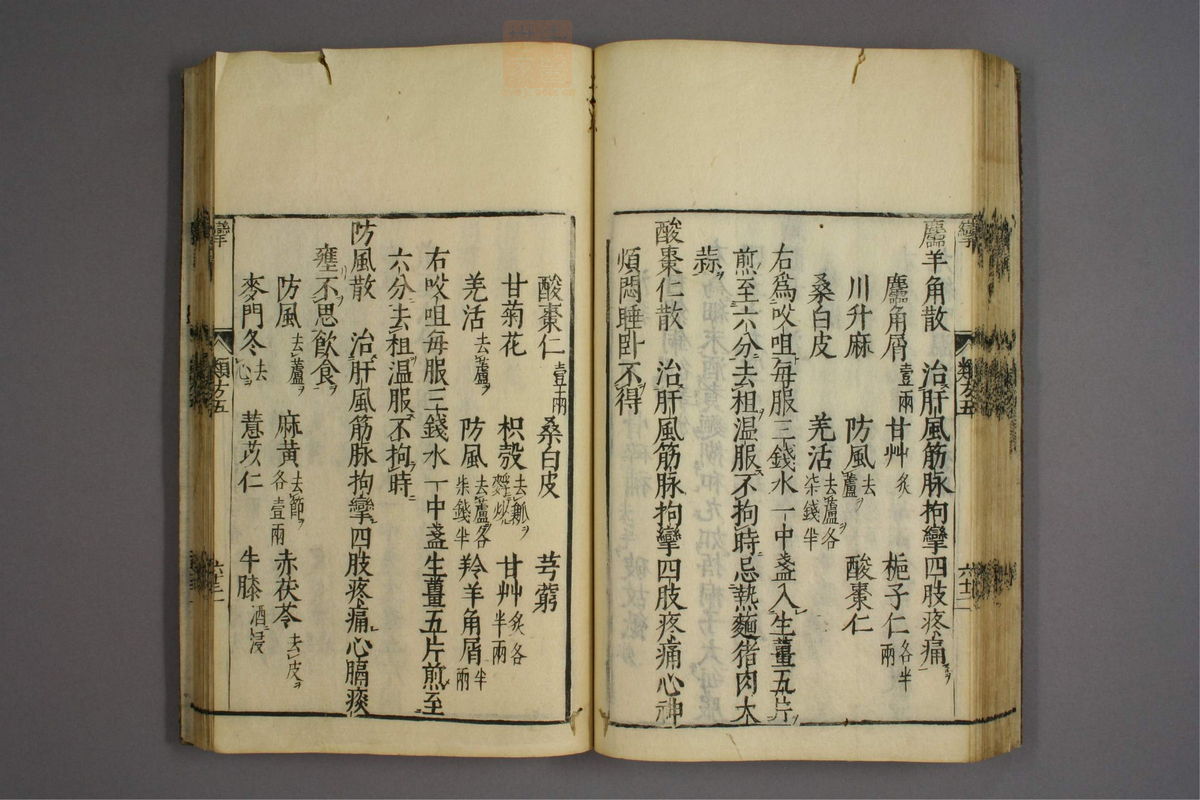 麢羊角散　治肝風筋脉拘攣四肢疼痛
麢角屑壹兩　甘艸炙　梔子仁各半兩
川升麻　防風去蘆　酸棗仁
桑白皮　羌活去蘆各柒錢半
右為㕮咀每服三錢水一中盞入生薑五片
煎至六分去柤温服不拘時忌熱麵猪肉大
蒜
酸棗仁散　治肝風筋脉拘攣四肢疼痛心神
煩悶睡卧不得
攣
類方五
酸棗仁壹兩　桑白皮　芎藭
甘菊花　枳殼去瓤麩炒　甘艸炙各半兩
羌活去蘆　防風去蘆各柒錢半　羚羊角屑半兩
右㕮咀每服三錢水一中盞生薑五片煎至
六分去柤温服不拘時
防風散　治肝風筋脉拘攣四肢疼痛心膈痰
壅不思飲食
防風去蘆　麻黃去節各壹兩　赤茯苓去皮
麥門冬去心　薏苡仁　牛膝酒浸
攣
類方五